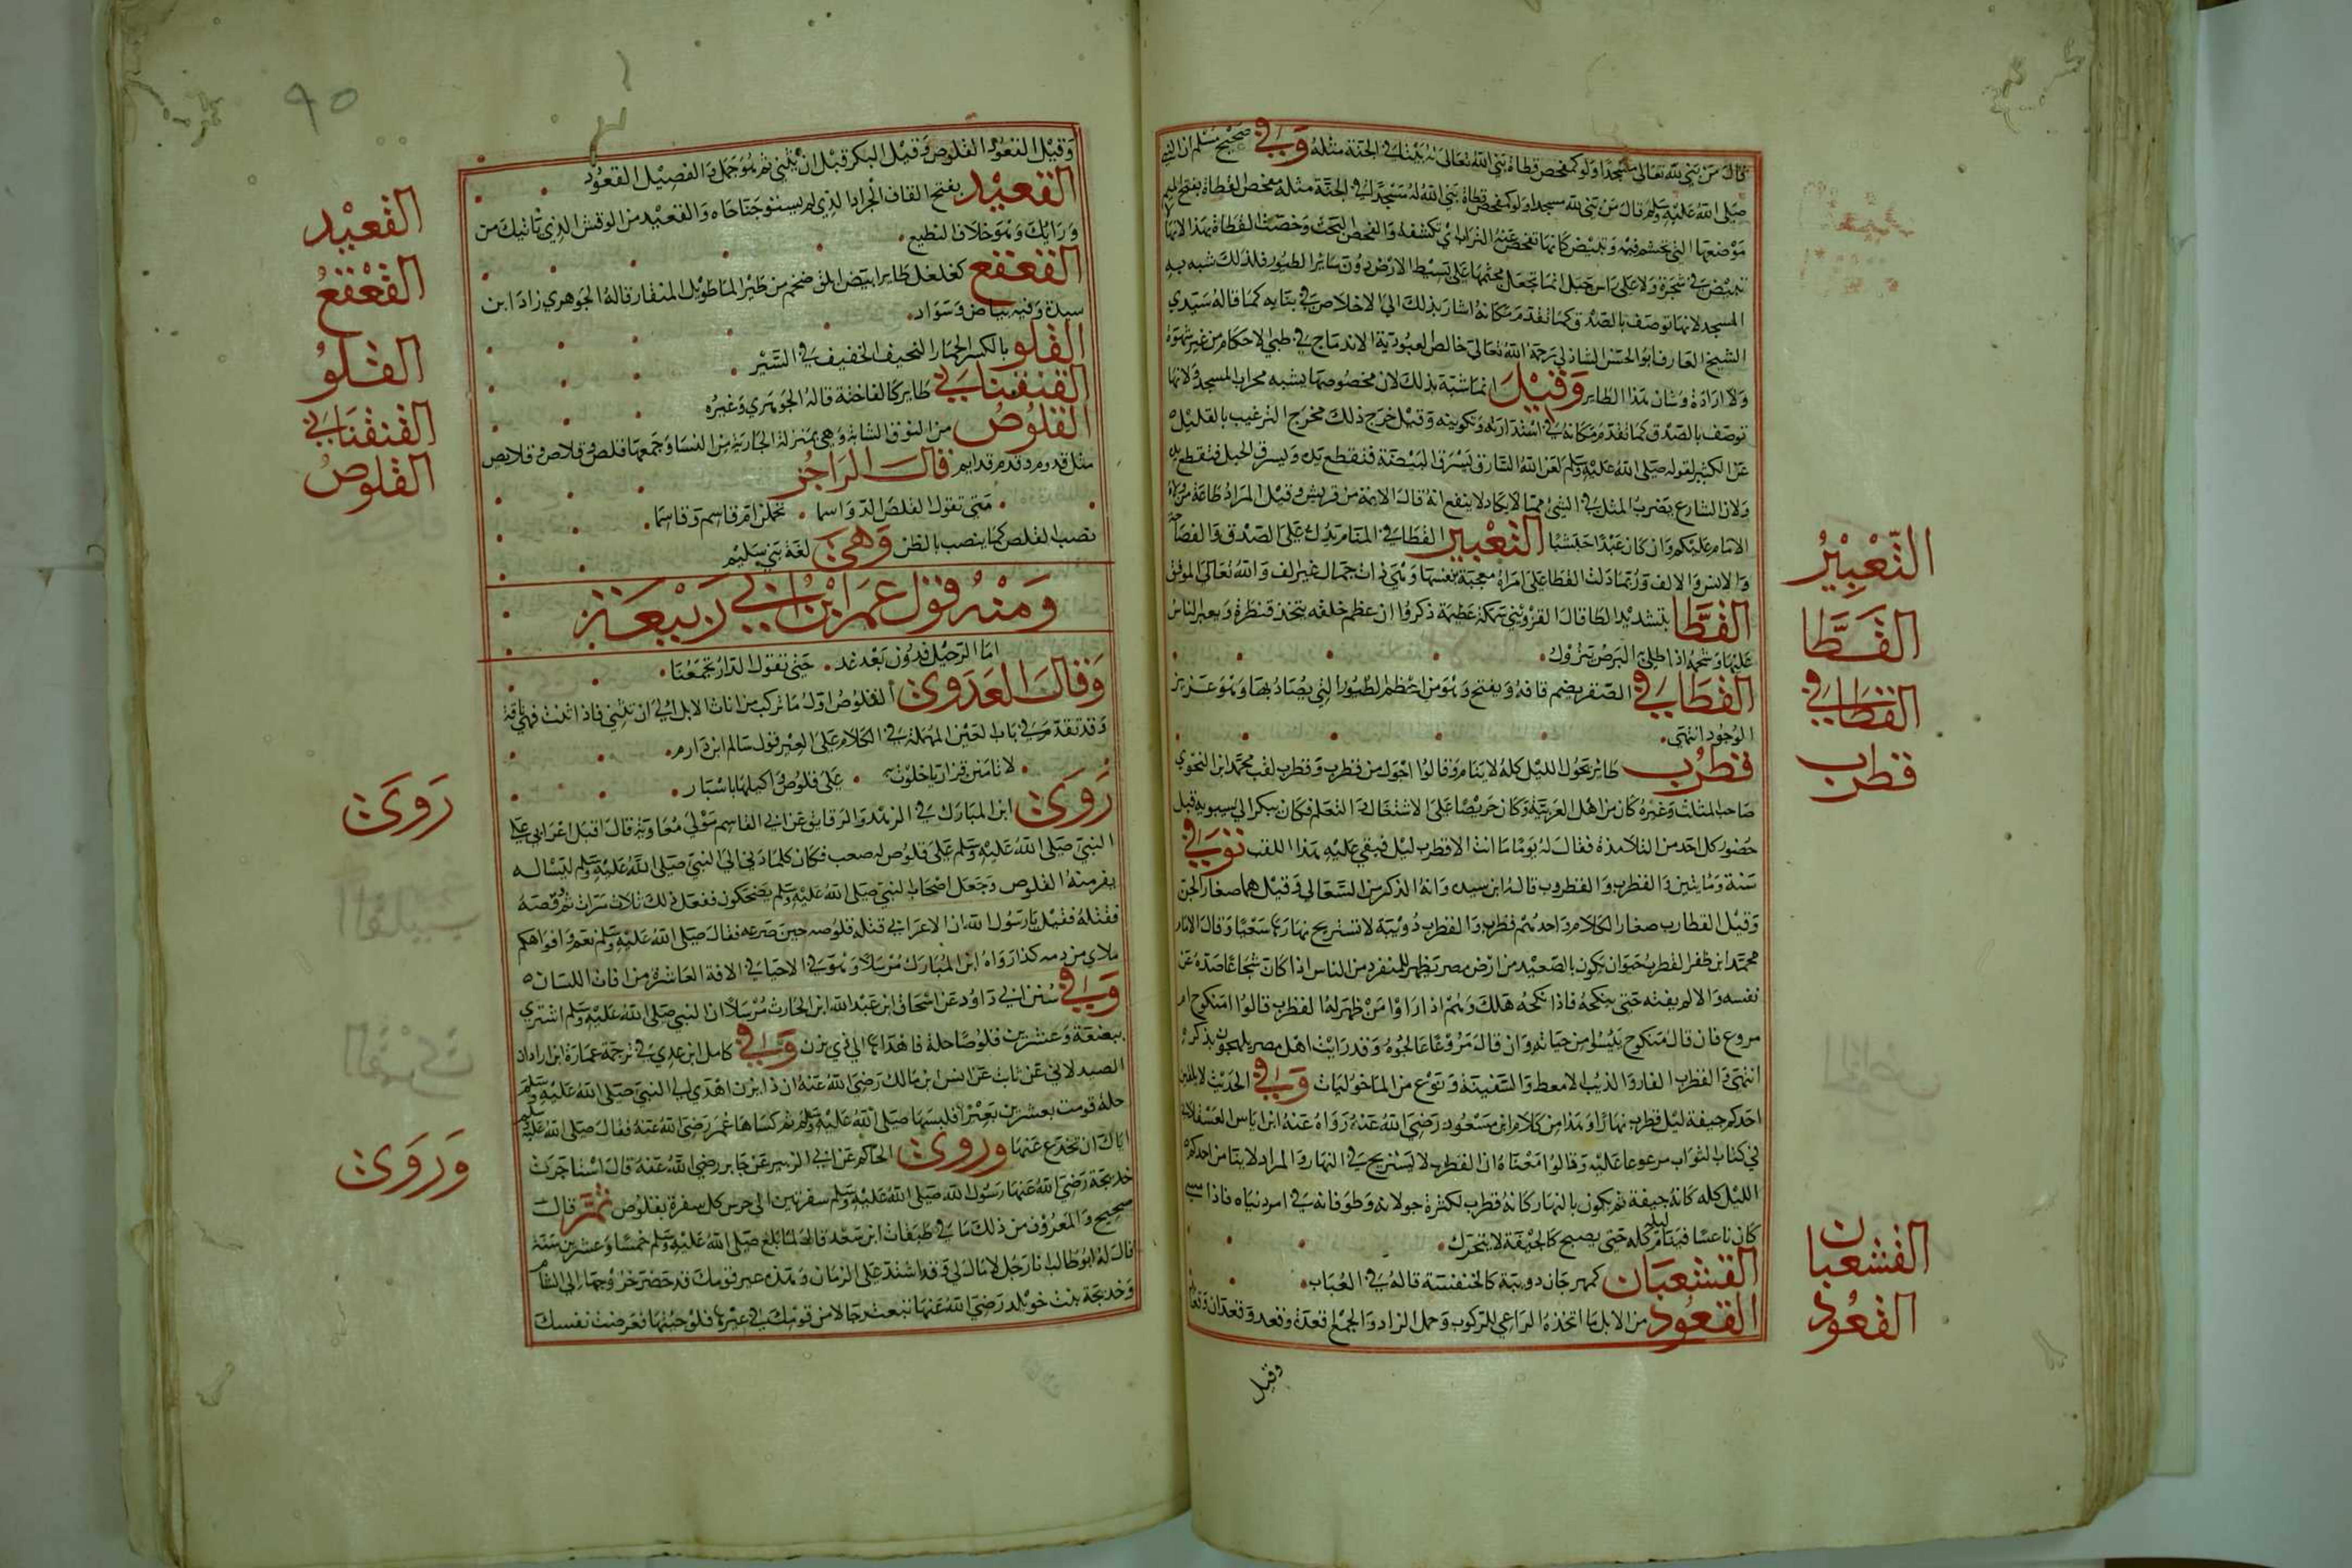 قال من بنى لله تعالى مسجدا ولو كمفحص قطاة بنى الله تعالى له بيتا في الجنة مثله وفي صحيح مسلم ان النبي
صلى الله عليه وسلم قال من بنى لله مسجدا ولو كمفحص قطاة بنى الله له مسجدا في الجنة مثله مفحص القطاة بفتح الميم
موضعها الذي تجثم فيه وتبيض كانها تفحص عنه التراب اي تكشفه والفحص البحث وخصت القطاة بهذا لانها لا
تبيض في شجرة ولا على راس جبل انما تجعل مجثمها على بسيط الارض دون سائر الطيور فلذلك شبه به
المسجد لانها توصف بالصدق كما تقدم فكانه اشار بذلك الى الاخلاص في بنايه كما قاله سيدي
الشيخ العارف ابو الحسن الشاذلي رحمه الله تعالى خالص العبودية الاندماج في طي الاحكام من غير شهوة
ولا ارادة وشان هذا الطاير وقيل انما شبه بذلك لان مخصوصها يشبه محراب المسجد ولانها
توصف بالصدق كما تقدم فكانه في استدارته وتكوينه وقيل خرج ذلك مخرج الترغيب بالقليل
عن الكثير لقوله صلى الله عليه وسلم لعن الله السارق يسرق البيضة فتقطع يده ويسرق الحبل فتقطع يده
ولان الشارع يضرب المثل في الشئ مما لا يكاد لا ينفع انه قال الايمة من قريش وقيل المراد طاعة من ولاه
الامام عليكم وان كان عبدا حبشيا التعبير القطا في المنام تدل على الصدق والفصا
والانس والالف وربما دلت القطا على امراة معجبة بنفسها وهي ذات جمال غير الف والله تعالى الموفق
القطا بتشديد الطا قال القزويني سمكة عظيمة ذكروا ان عظم خلفه يتخذ قنطرة ويعبر الناس
عليها وشحمه اذا طلي البرص يزول
القطامي الصقر بضم قافه ويفتح وهو من اعظم الطيور التي يصاد بها وهو عزيز
الوجود انتهى
قطرب طاير يجول الليل كله لا ينام وقالوا اجول من قطرب وقطرب لقب محمد ابن النحوي
صاحب المثلث وغيره كان من اهل العربية وكان حريصا على الاشتغال والتعلم فكان يبكر الى سيبويه قبل
حضور كل احد من التلامذة فقال له يوما ما انت الا قطرب ليل فبقي عليه هذا اللقب توفي
سنة ومايتين والقطرب والقطروب قال ابن سيده وانه الذكر من السعالي وقيل هما صغار الجن
وقيل القطارب صغار الكلام واحدهم قطرب والقطرب دويبة لا تستريح نهارها سعيا وقال الامام
محمد ابن ظفر القطرب حيوان يكون بالصعيد من ارض مصر يظهر للمنفرد من الناس اذا كان شجاعا صده عن
نفسه والا لم يفته حتى ينكحه فاذا نكحه هلك وهم اذا راوا من ظهر له القطرب قالوا امنكوح ام
مروع فان قال منكوح يئسوا من حياته وان قال مروعا عالجوه وقد رايت اهل مصر يلهجون بذكره
انتهى والقطرب الفار والذيب الامعط والسفينة ونوع من الماخوليات وفي الحديث لا يلفين
احدكم جيفة ليل قطرب نهار او هذا من كلام ابن مسعود رضي الله عنه رواه عنه ابن اياس العسقلاني
في كتاب الثواب مرفوعا عليه وقالوا معناه ان القطرب لا يستريح في النهار والمراد لا ينام احدكم
الليل كله كانه جيفة ثم يكون بالنهار كانه قطرب لكثرة جولانه وطوفانه في امر دنياه فاذا امسى
كان ناعسا فينام ليله كله حتى يصبح كالجيفة لا يتحرك
القشعبان كمهرجان دويبة كالخنفسة قاله في العباب
القعود من الابل ما اتخذه الراعي للركوب وحمل الزاد والجمع اقعدة وقعد وقعدان وقعايد
وقيل
التعبير
القطا
القطامي
قطرب
القشعبان
القعود
٩٥
وقيل القعود القلوص وقيل البكر قبل ان يثني ثم هو جمل والفصيل القعود
القعيد بفتح القاف الجراد الذي لم يستو جناحاه والقعيد من الوحش الذي تاتيك من
ورايك وهو خلاف النطيح
القعقع كفلفل طاير ابيض ابلق ضخم من طير الما طويل المنقار قاله الجوهري زاد ابن
سيدة وفيه بياض وسواد
القلو بالكسر الحمار النحيف الخفيف في السير
القنفنابي طاير كالفاختة قاله الجوهري وغيره
القلوص من النوق الشابة وهي بمنزلة الجارية من النسا وجمعها قلص وقلاص وقلايص
مثل قدوم وقدم وقدايم قال الراجز
متى تقول القلص الرواسما . تحملن ام قاسم وقاسما
نصب القلص كما ينصب بالظن وهي لغة بني سليم
ومنه قول عمر ابن ابي ربيعة
اما الرحيل فدون بعد غد . حتى تقول الدار تجمعنا
وقال العدوي القلوص اول ما تركب من اناث الابل الى ان تثني فاذا اثنت فهي ناقة
وقد تقدم في باب العين المهملة في الكلام على العير قول سالم ابن دارم
لا تامنن فزاريا خلوت به . على قلوصك واكلها باسيار
روى ابن المبارك في الزهد والرقايق عن ابي القاسم مولى معاوية قال اقبل اعرابي على
النبي صلى الله عليه وسلم على قلوص له صعب فكان كلما دنى الى النبي صلى الله عليه وسلم ليساله
يفر منه القلوص وجعل اصحاب النبي صلى الله عليه وسلم يضحكون ففعل ذلك ثلاث مرات ثم وقصه
فقتله فقيل يا رسول الله ان الاعرابي قتله قلوصه حين صرعه فقال صلى الله عليه وسلم نعم وافواهكم
ملاى من دمه كذا رواه ابن المبارك مرسلا وهو في الاحيا في الافة العاشرة من افات اللسان
وفي سنن ابي داود عن اسحاق ابن عبد الله ابن الحارث مرسلا ان النبي صلى الله عليه وسلم اشترى
ببضعة وعشرين قلوصا حلة فاهداها الى ذي يزن وفي كامل ابن عدي في ترجمة عمارة ابن زاذان
الصيدلاني عن ثابت عن انس ابن مالك رضي الله عنه ان ذا يزن اهدى الى النبي صلى الله عليه وسلم
حلة قومت بعشرين بعيرا فلبسها صلى الله عليه وسلم ثم كساها عمر رضي الله عنه فقال صلى الله عليه وسلم
اياك ان تخدع عنها وروى الحاكم عن ابي الزبير عن جابر رضي الله عنه قال استاجرت
خديجة رضي الله عنها رسول الله صلى الله عليه وسلم سفرتين الى جرس كل سفرة بقلوص ثم قال
صحيح والمعروف من ذلك ما في طبقات ابن سعد قال لما بلغ صلى الله عليه وسلم خمسا وعشرين سنة
قال له ابو طالب انا رجل لا مال لي وقد اشتد علي الزمان وهذه عير قومك قد حضر خروجها الى الشام
وخديجة بنت خويلد رضي الله عنها تبعث رجالا من قومك في عيرها فلو جيتها فعرضت نفسك
القعيد
القعقع
القلو
القنفنابي
القلوص
روى
وروى